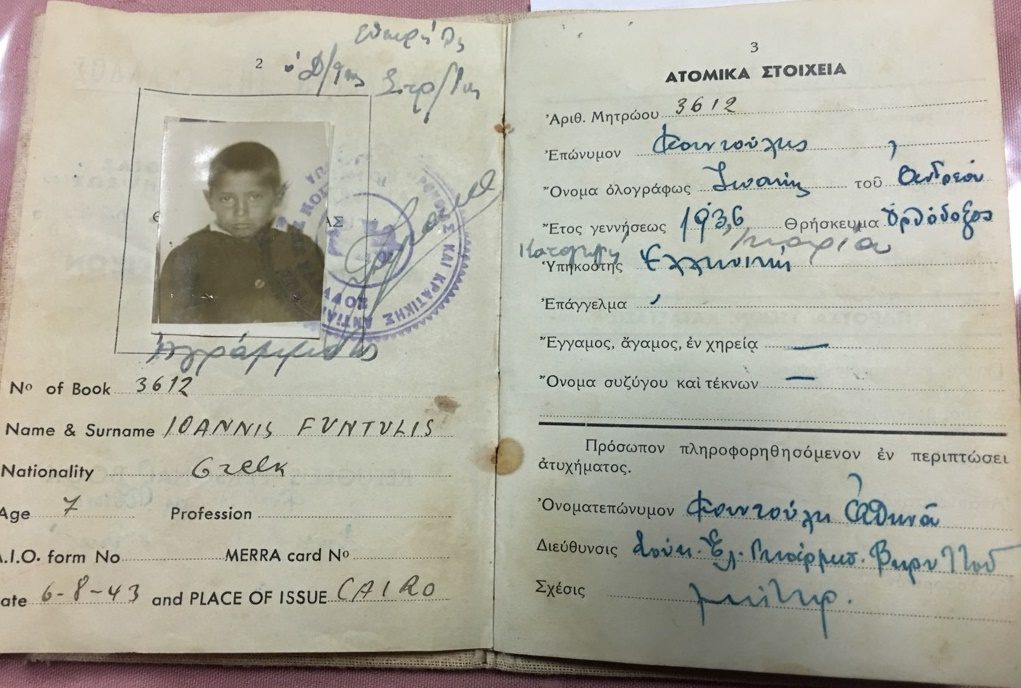 2
Nº of Book 3612
Name & Surname IOANNIS FUNTULIS
Nationality Greek
Age 7 Profession
A.I.O. form No MERRA card Nº
ate 6-8-43 and PLACE OF ISSUE CAIRO
ΑΣ
ΚΑΙ ΚΡΑΤΙΚΗΣ ΑΝΤΙΛ
Ἀγράμματος
3
ΑΤΟΜΙΚΑ ΣΤΟΙΧΕΙΑ
Ἀριθ. Μητρώου 3612
Ἐπώνυμον Φουντούλης
Ὄνομα ὁλογράφως Ἰωάννης τοῦ Ἀνδρέου
Ἔτος γεννήσεως 1936 Θρήσκευμα Ὀρθόδοξος
Ὑπηκοότης Ἑλληνική
Ἐπάγγελμα
Ἔγγαμος, ἄγαμος, ἐν χηρείᾳ —
Ὄνομα συζύγου καὶ τέκνων —
Πρόσωπον πληροφορηθησόμενον ἐν περιπτώσει
ἀτυχήματος.
Ὀνοματεπώνυμον Φουντούλη Ἀθηνᾶ
Διεύθυνσις
Σχέσις μήτηρ.